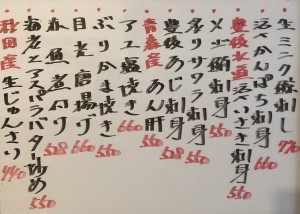 生ミンク鯨刺し 770
活かんぱち刺身 550
メジ鮪刺身 550
豊後水道 活いさき刺身 550
炙りサワラ刺身 550
豊後あじ刺身 660
青森産 あん肝 660
アユ塩焼き 550
ぶりかま焼き 660
目光唐揚げ 550
春子煮付け 528
海老とアスパラバター炒め 550
秋田産 生じゅんさい 440